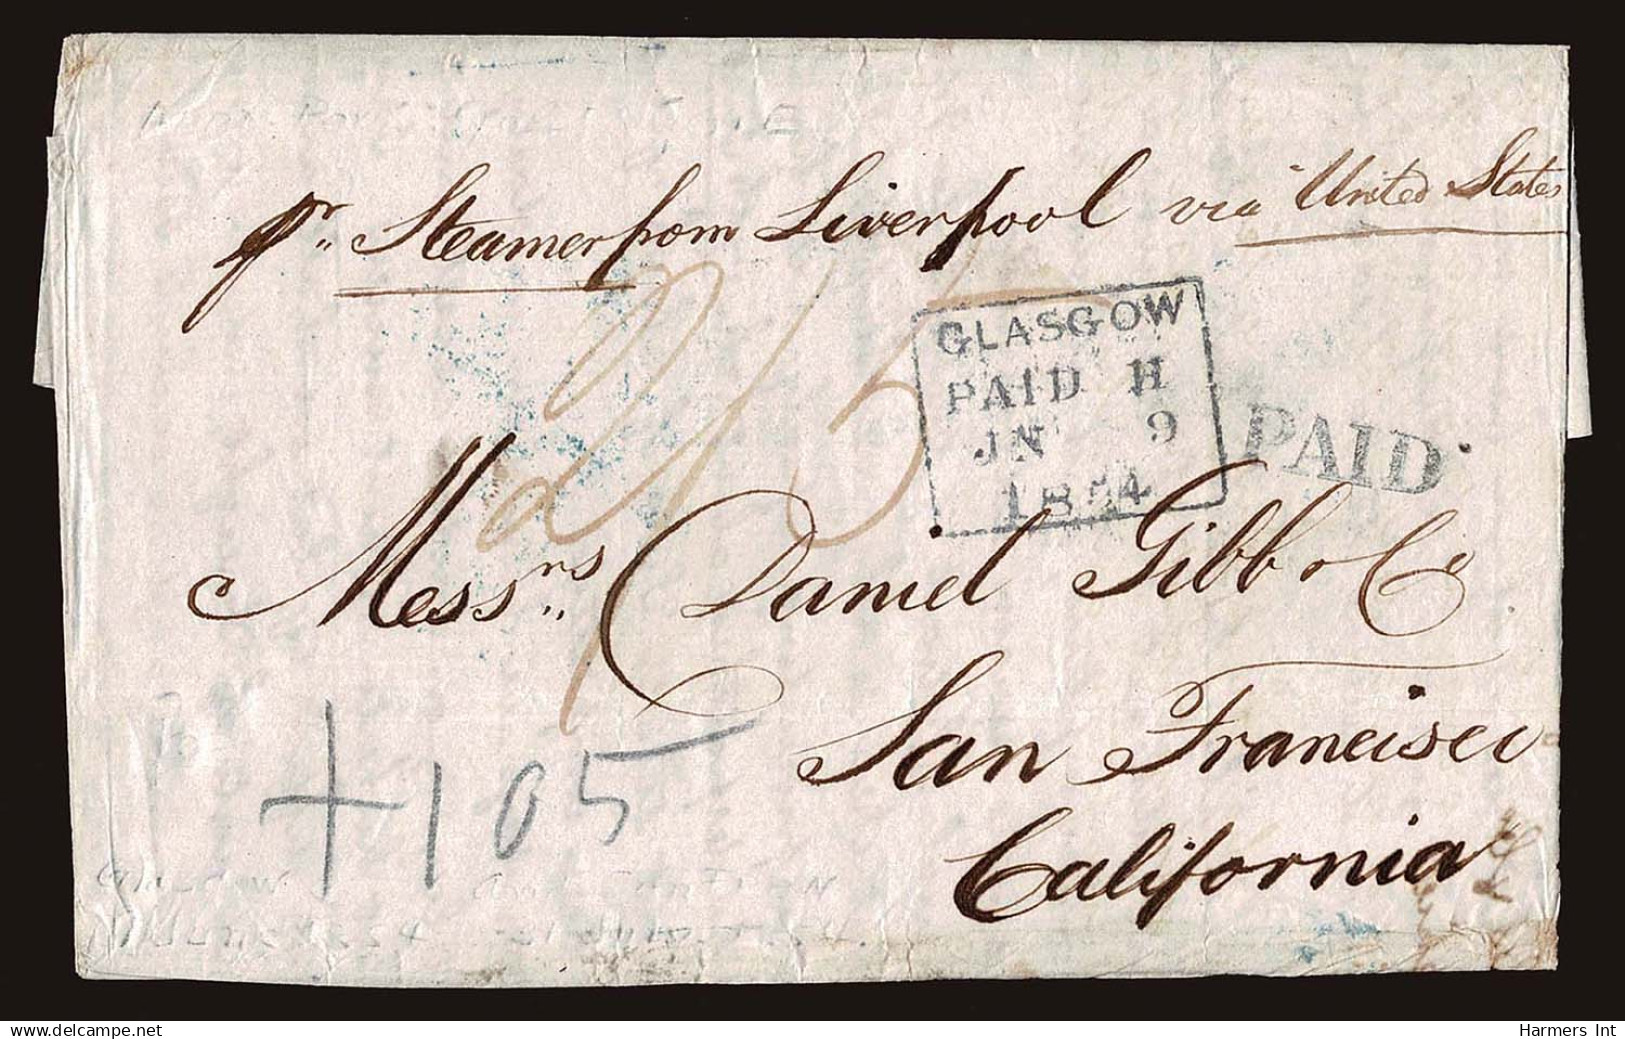 pr. Steamer from Liverpool via United States
2/5
GLASGOW
PAID H
JN 9
1854
PAID
Messrs Daniel Gibb & Co
San Francisco
California
+105
GLASGOW
www.delcampe.net
Harmers Int